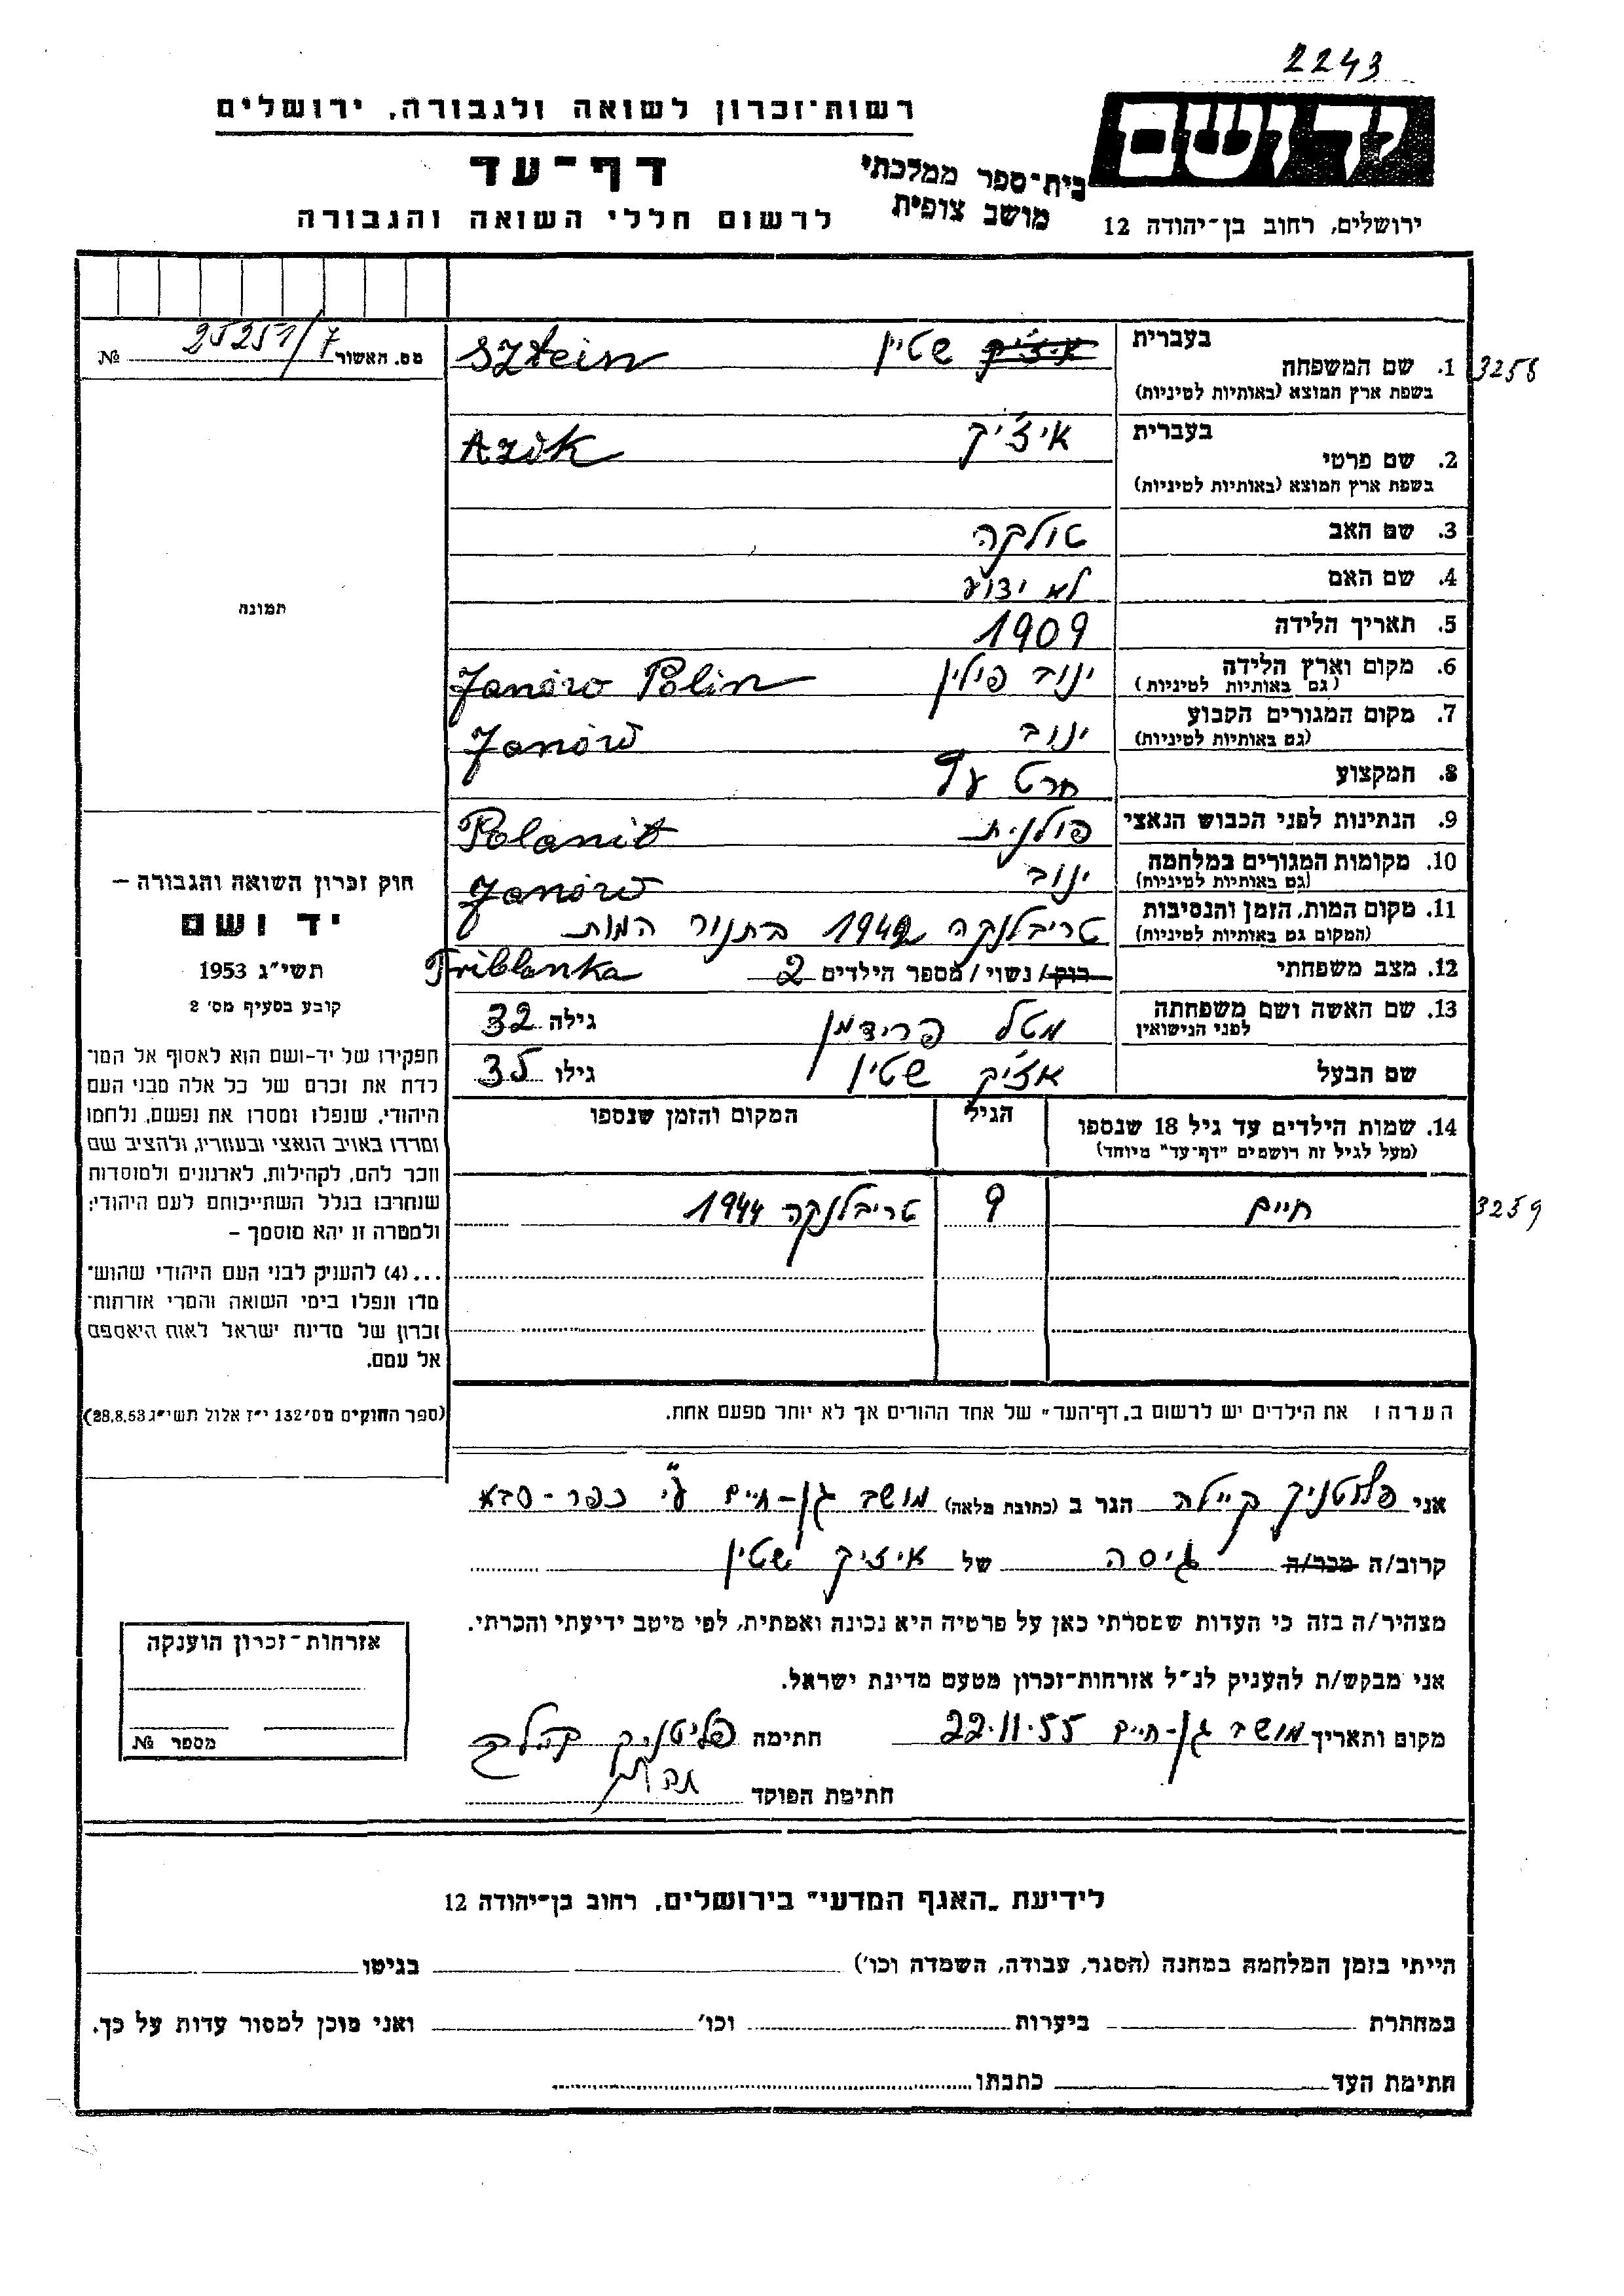 2243
יד ושם
רשות-זכרון לשואה ולגבורה, ירושלים
דף-עד
בית-ספר ממלכתי
מושב צופית
לרשום חללי השואה והגבורה
ירושלים, רחוב בן-יהודה 12
מס. האשור 25251/7 №
בעברית
1. שם המשפחה איציק שטיין Sztein
3258
בשפת ארץ המוצא (באותיות לטיניות)
בעברית
2. שם פרטי איציק Azik
בשפת ארץ המוצא (באותיות לטיניות)
3. שם האב טולקה
4. שם האם לא ידוע
5. תאריך הלידה 1909
6. מקום וארץ הלידה ינוב פולין Janów Polin
(גם באותיות לטיניות)
7. מקום המגורים הקבוע ינוב Janów
(גם באותיות לטיניות)
8. המקצוע חרט עץ
9. הנתינות לפני הכבוש הנאצי פולנית Polanit
10. מקומות המגורים במלחמה ינוב Janów
(גם באותיות לטיניות)
11. מקום המות, הזמן והנסיבות טריבלנקה 1942 בתנור המות
(המקום גם באותיות לטיניות) Triblanka
12. מצב משפחתי רוק/ נשוי / מספר הילדים 2
13. שם האשה ושם משפחתה מטל פרידמן גילה 32
לפני הנישואין
שם הבעל אציק שטיין גילו 35
14. שמות הילדים עד גיל 18 שנספו הגיל המקום והזמן שנספו
(מעל לגיל זה רושמים "דף-עד" מיוחד)
חיים 9 טריבלנקה 1944
3259
תמונה
חוק זכרון השואה והגבורה –
יד ושם
תשי"ג 1953
קובע בסעיף מס' 2
תפקידו של יד-ושם הוא לאסוף אל המו־
לדת את זכרם של כל אלה מבני העם
היהודי, שנפלו ומסרו את נפשם, נלחמו
ומרדו באויב הנאצי ובעוזריו, ולהציב שם
וזכר להם, לקהילות, לארגונים ולמוסדות
שנחרבו בגלל השתייכותם לעם היהודי;
ולמטרה זו יהא מוסמך –
...(4) להעניק לבני העם היהודי שהוש־
מדו ונפלו בימי השואה והמרי אזרחות־
זכרון של מדינת ישראל לאות היאספם
אל עמם.
(ספר החוקים מס' 132 י"ז אלול תשי"ג 28.8.53)
הערה: את הילדים יש לרשום ב„דף-העד" של אחד ההורים אך לא יותר מפעם אחת.
אני פלטניק קיילה הגר ב (כתובת מלאה) מושב גן-חיים ע"י כפר-סבא
קרוב/ה מכר/ה גיסה של איציק שטיין
מצהיר/ה בזה כי העדות שמסרתי כאן על פרטיה היא נכונה ואמתית, לפי מיטב ידיעתי והכרתי.
אני מבקש/ת להעניק לנ"ל אזרחות-זכרון מטעם מדינת ישראל.
מקום ותאריך מושב גן-חיים 22.11.55 חתימה פלטניק קיילה
חתימת הפוקד
אזרחות-זכרון הוענקה
מספר №
לידיעת „האגף המדעי" בירושלים, רחוב בן-יהודה 12
הייתי בזמן המלחמה במחנה (הסגר, עבודה, השמדה וכו') בגיטו
במחתרת ביערות וכו' ואני מוכן למסור עדות על כך.
חתימת העד כתבתו